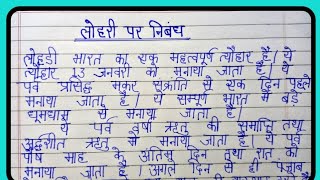 लोहरी पर निबंध
लोहडी भारत का एक महत्वपूर्ण त्यौहार हैं। ये
त्यौहार 13 जनवरी को मनाया जाता है। ये
पर्व प्रसिद्ध मकर सक्रांति से एक दिन पहले
मनाया जाता है। ये सम्पूर्ण भारत में बडे
धूमधाम से मनाया जाता है।
ये पर्व वर्षा ऋतु की समाप्ति तथा
ऋतु मनाया जाता है। ये पर्व
पौष माह के अंतिम दिन तथा रात को
मनाया जाता है। अगले दिन से ही पंजाब